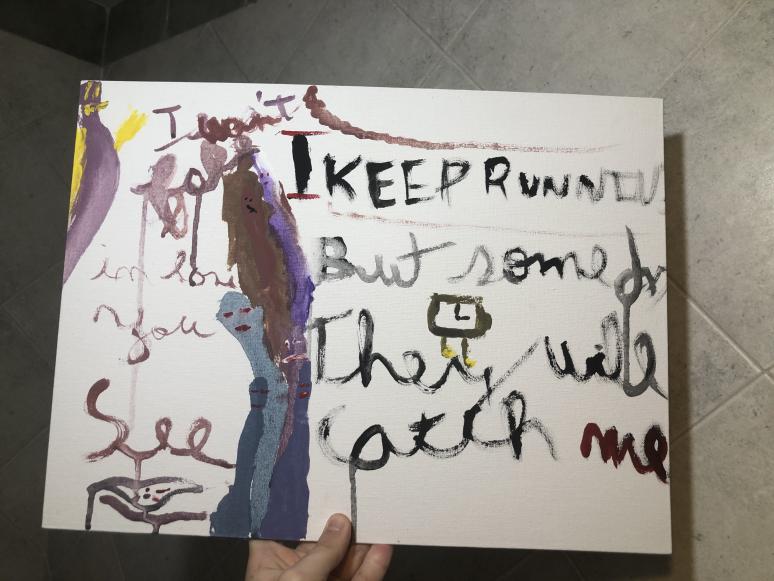 I won't
in
you
See
I KEEP RUNNIN
But some
They will
catch me